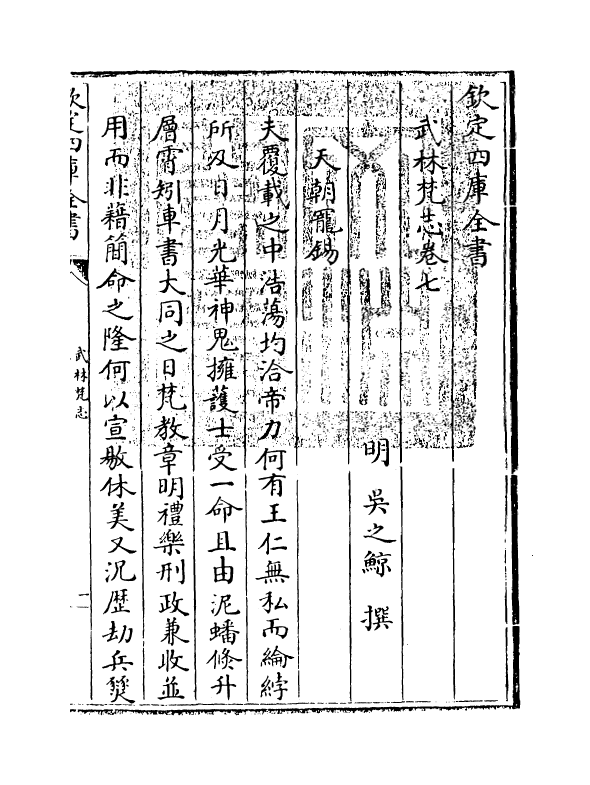 欽定四庫全書
武林梵志卷七
明 吳之鯨 撰
天朝寵錫
夫覆載之中浩蕩均洽帝力何有王仁無私而綸綍
所及日月光華神鬼擁護士受一命且由泥蟠倐升
層霄矧車書大同之日梵教章明禮樂刑政兼收並
用而非藉簡命之隆何以宣敭休美又況歴劫兵燹
欽定四庫全書
武林梵志